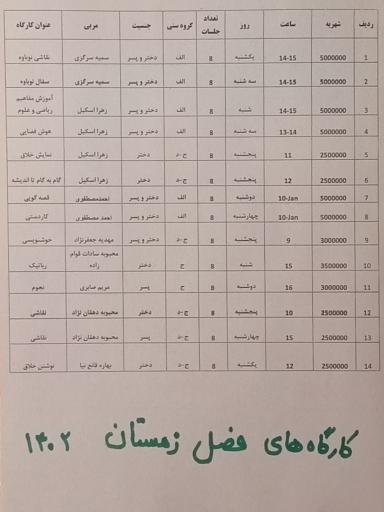 ردیف شهریه ساعت روز تعداد جلسات گروه سنی جنسیت مربی عنوان کارگاه
1 5000000 14-15 یکشنبه 8 الف دختر و پسر سمیه سرگزی نقاشی نوباوه
2 5000000 14-15 سه شنبه 8 الف دختر و پسر سمیه سرگزی سفال نوباوه
3 5000000 14-15 شنبه 8 الف دختر و پسر زهرا اسکیل آموزش مفاهیم ریاضی و علوم
4 5000000 13-14 سه شنبه 8 الف دختر و پسر زهرا اسکیل هوش فضایی
5 2500000 11 پنجشنبه 8 ج-د دختر زهرا اسکیل نمایش خلاق
6 2500000 12 پنجشنبه 8 ج-د دختر زهرا اسکیل گام به گام تا اندیشه
7 5000000 10-Jan دوشنبه 8 الف دختر و پسر احمدمصطفوری قصه گویی
8 5000000 10-Jan چهارشنبه 8 الف دختر و پسر احمد مصطفوری کاردستی
9 3000000 9 پنجشنبه 8 ج-د دختر و پسر مهدیه جعفرنژاد خوشنویسی
10 3500000 15 شنبه 8 ج دختر محبوبه سادات قوام زاده رباتیک
11 3000000 16 دوشنبه 8 ج پسر مریم صابری نجوم
12 2500000 10 پنجشنبه 8 ج-د دختر محبوبه دهقان نژاد نقاشی
13 2500000 15 چهارشنبه 8 ج-د پسر محبوبه دهقان نژاد نقاشی
14 2500000 12 یکشنبه 8 ج-د دختر بهاره قانع نیا نوشتن خلاق
کارگاه های فصل زمستان ۱۴۰۲